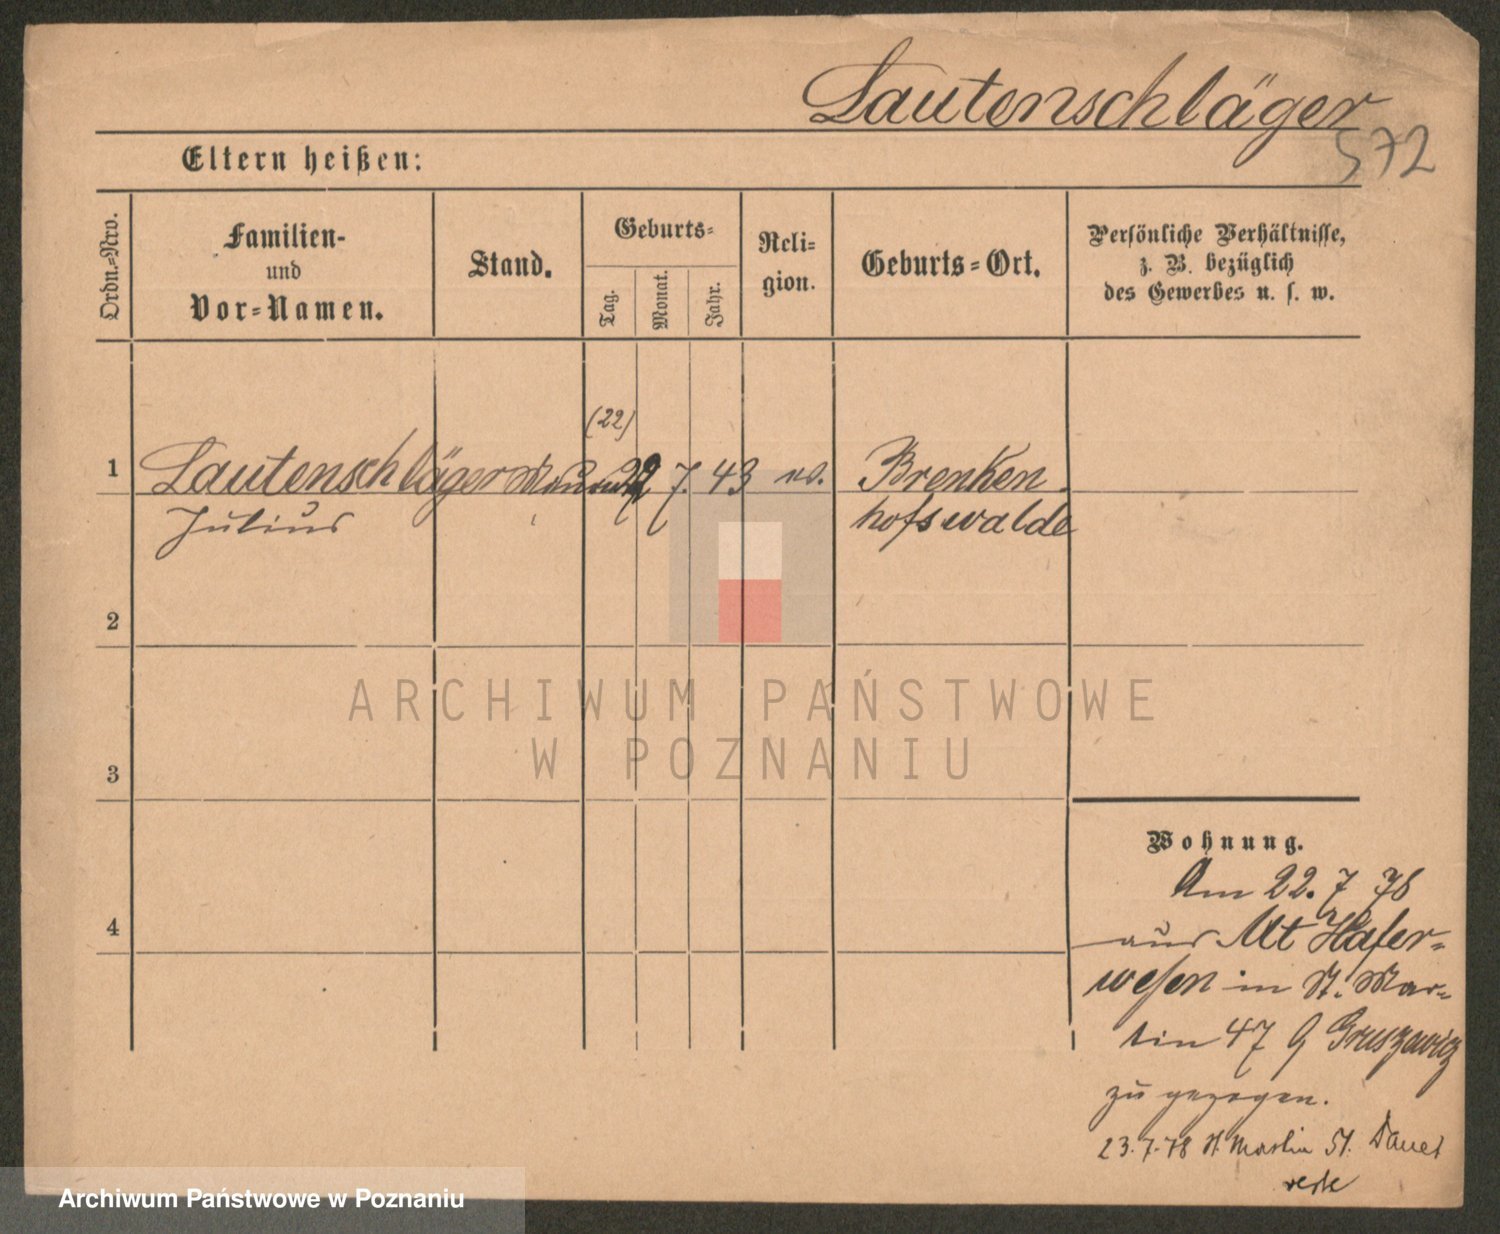 Lautenschläger
572
Eltern heißen:
Ordn.-Nro.
Familien-
und
Vor-Namen.
Stand.
Geburts-
Tag.
Monat.
Jahr.
Reli-
gion.
Geburts-Ort.
Persönliche Verhältnisse,
z. B. bezüglich
des Gewerbes u. s. w.
(22)
1 Lautenschläger 7. 43 ev. Brenken
Julius hofswalde
2
ARCHIWUM PAŃSTWOWE
W POZNANIU
3
Wohnung.
Am 22. 7 78
4
aus Alt Hafer-
wesen in St. Mar-
tin 47 Gruszewicz
zu gezogen.
23.7.78 St. Martin 51.
Archiwum Państwowe w Poznaniu